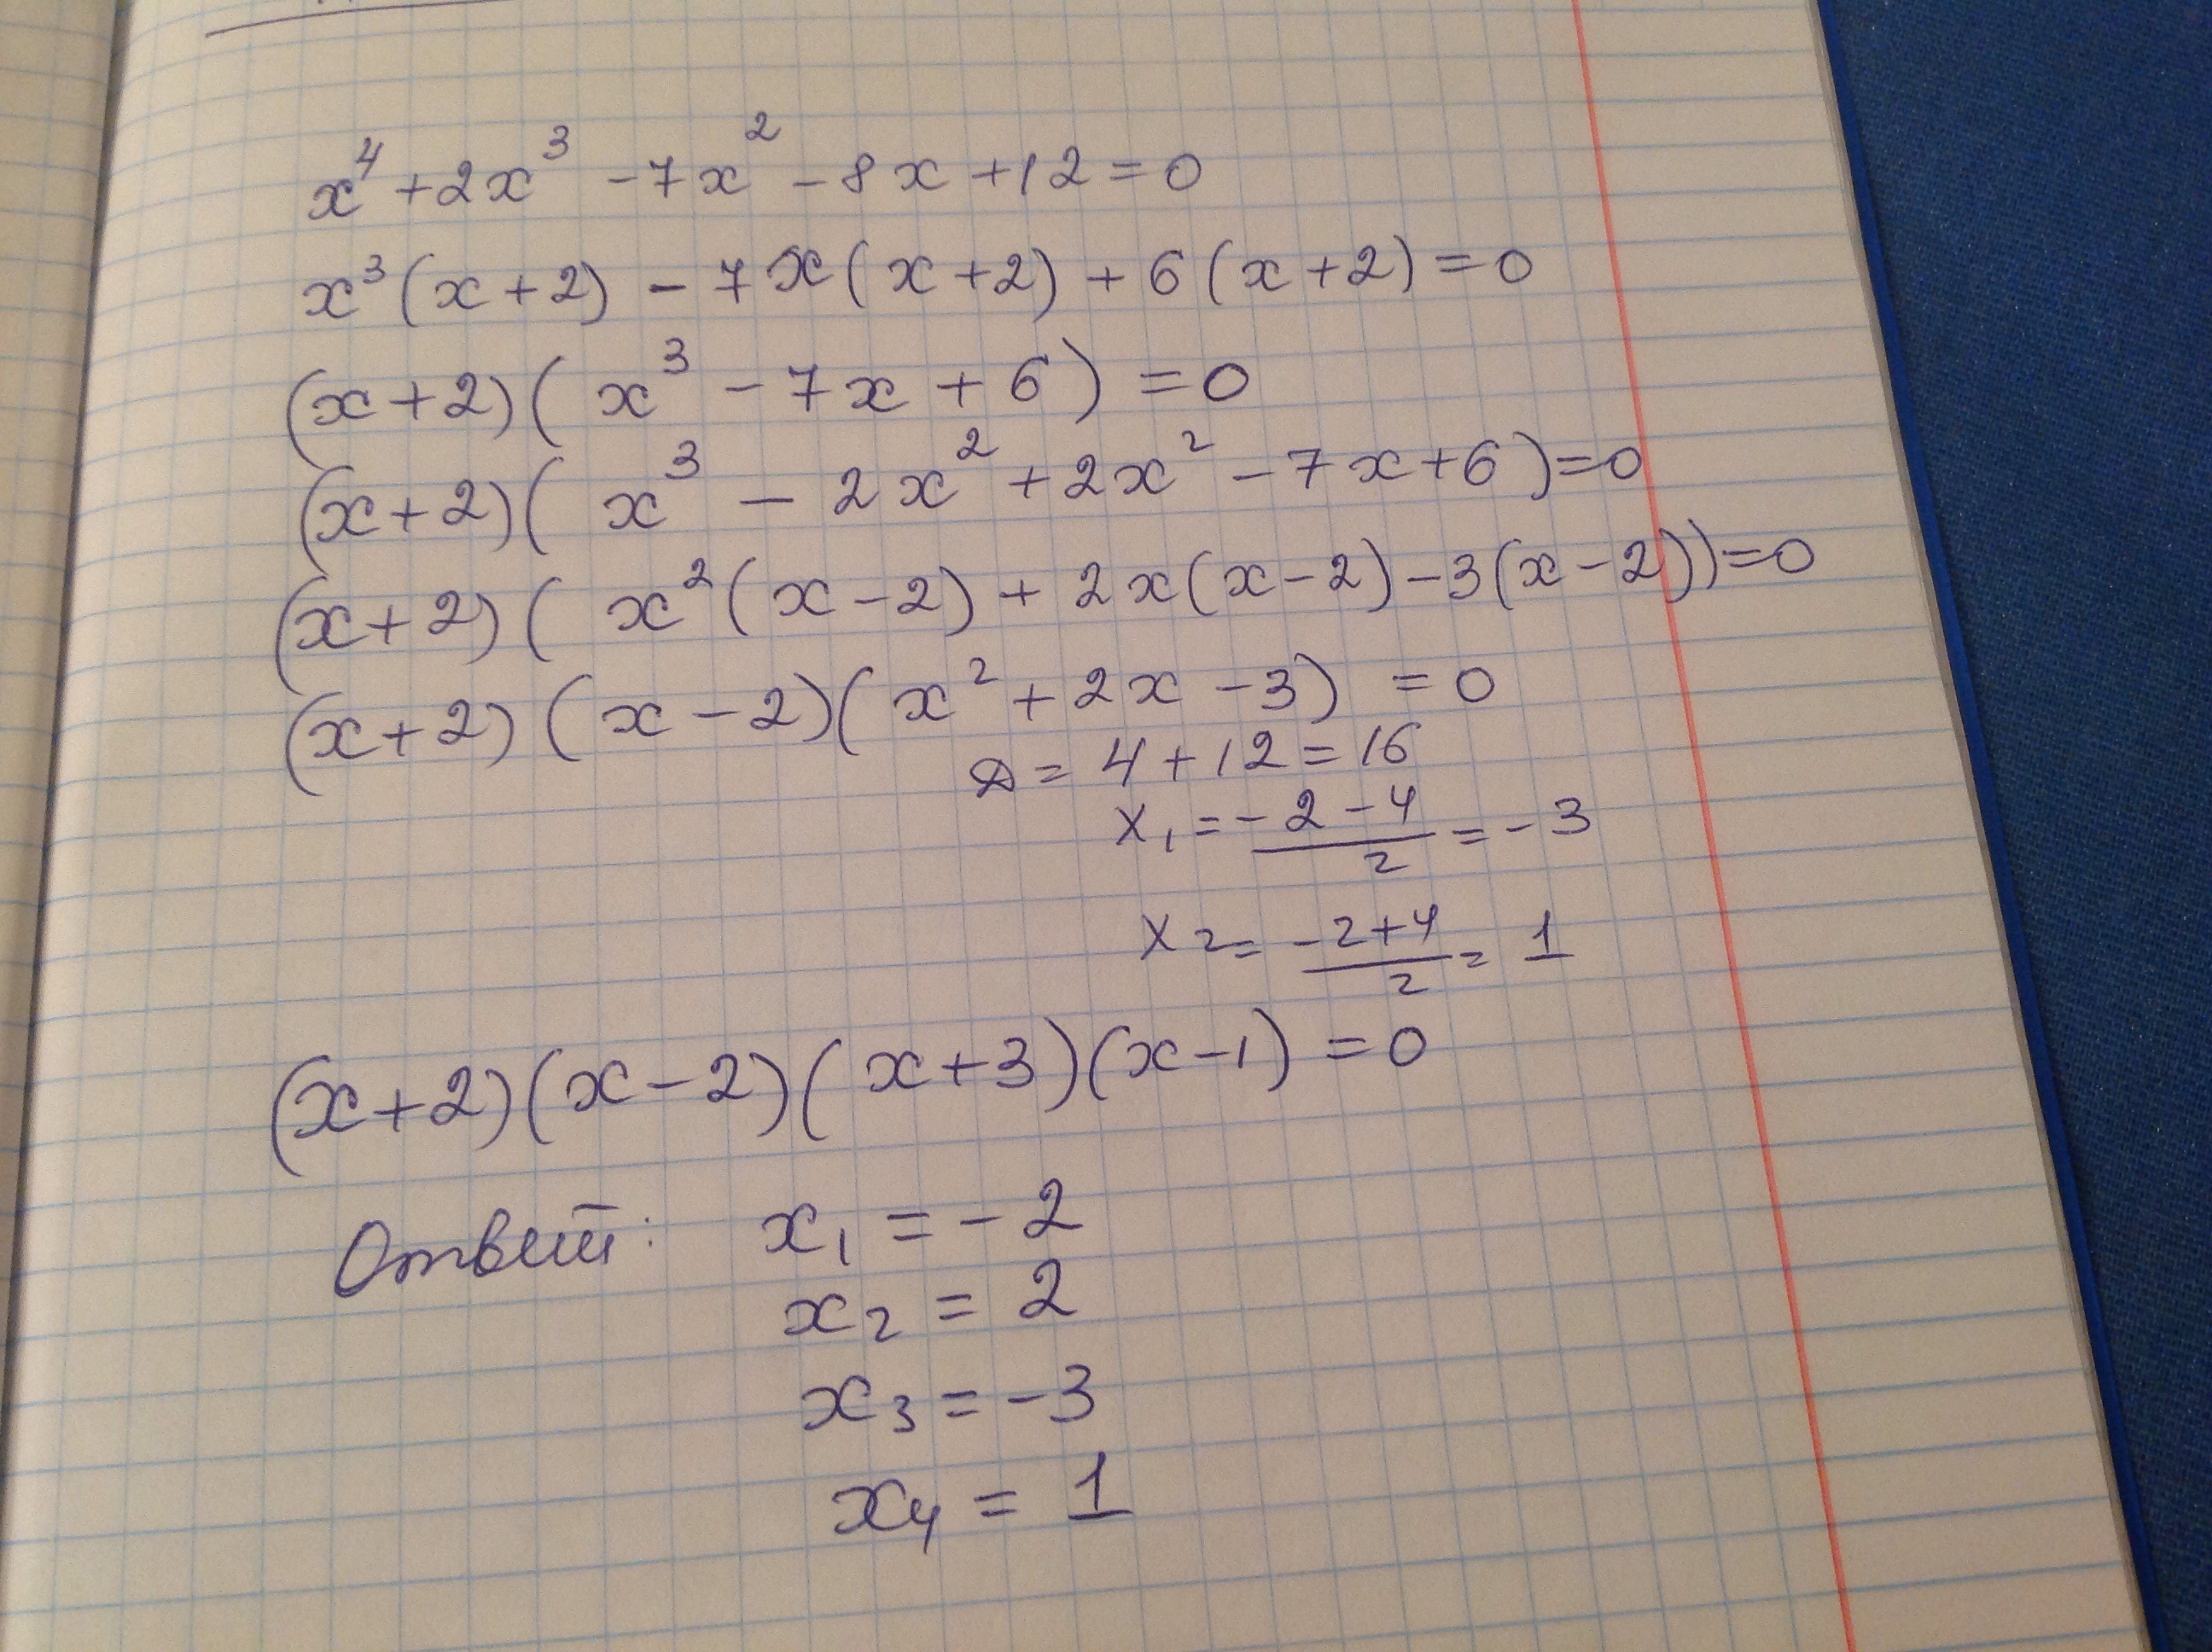 x⁴ + 2x³ - 7x² - 8x + 12 = 0
x³(x + 2) - 7x(x + 2) + 6(x + 2) = 0
(x + 2)(x³ - 7x + 6) = 0
(x + 2)(x³ - 2x² + 2x² - 7x + 6) = 0
(x + 2)(x²(x - 2) + 2x(x - 2) - 3(x - 2)) = 0
(x + 2)(x - 2)(x² + 2x - 3) = 0
D = 4 + 12 = 16
x₁ = (-2 - 4)/2 = -3
x₂ = (-2 + 4)/2 = 1
(x + 2)(x - 2)(x + 3)(x - 1) = 0
Ответ: x₁ = -2
x₂ = 2
x₃ = -3
x₄ = 1